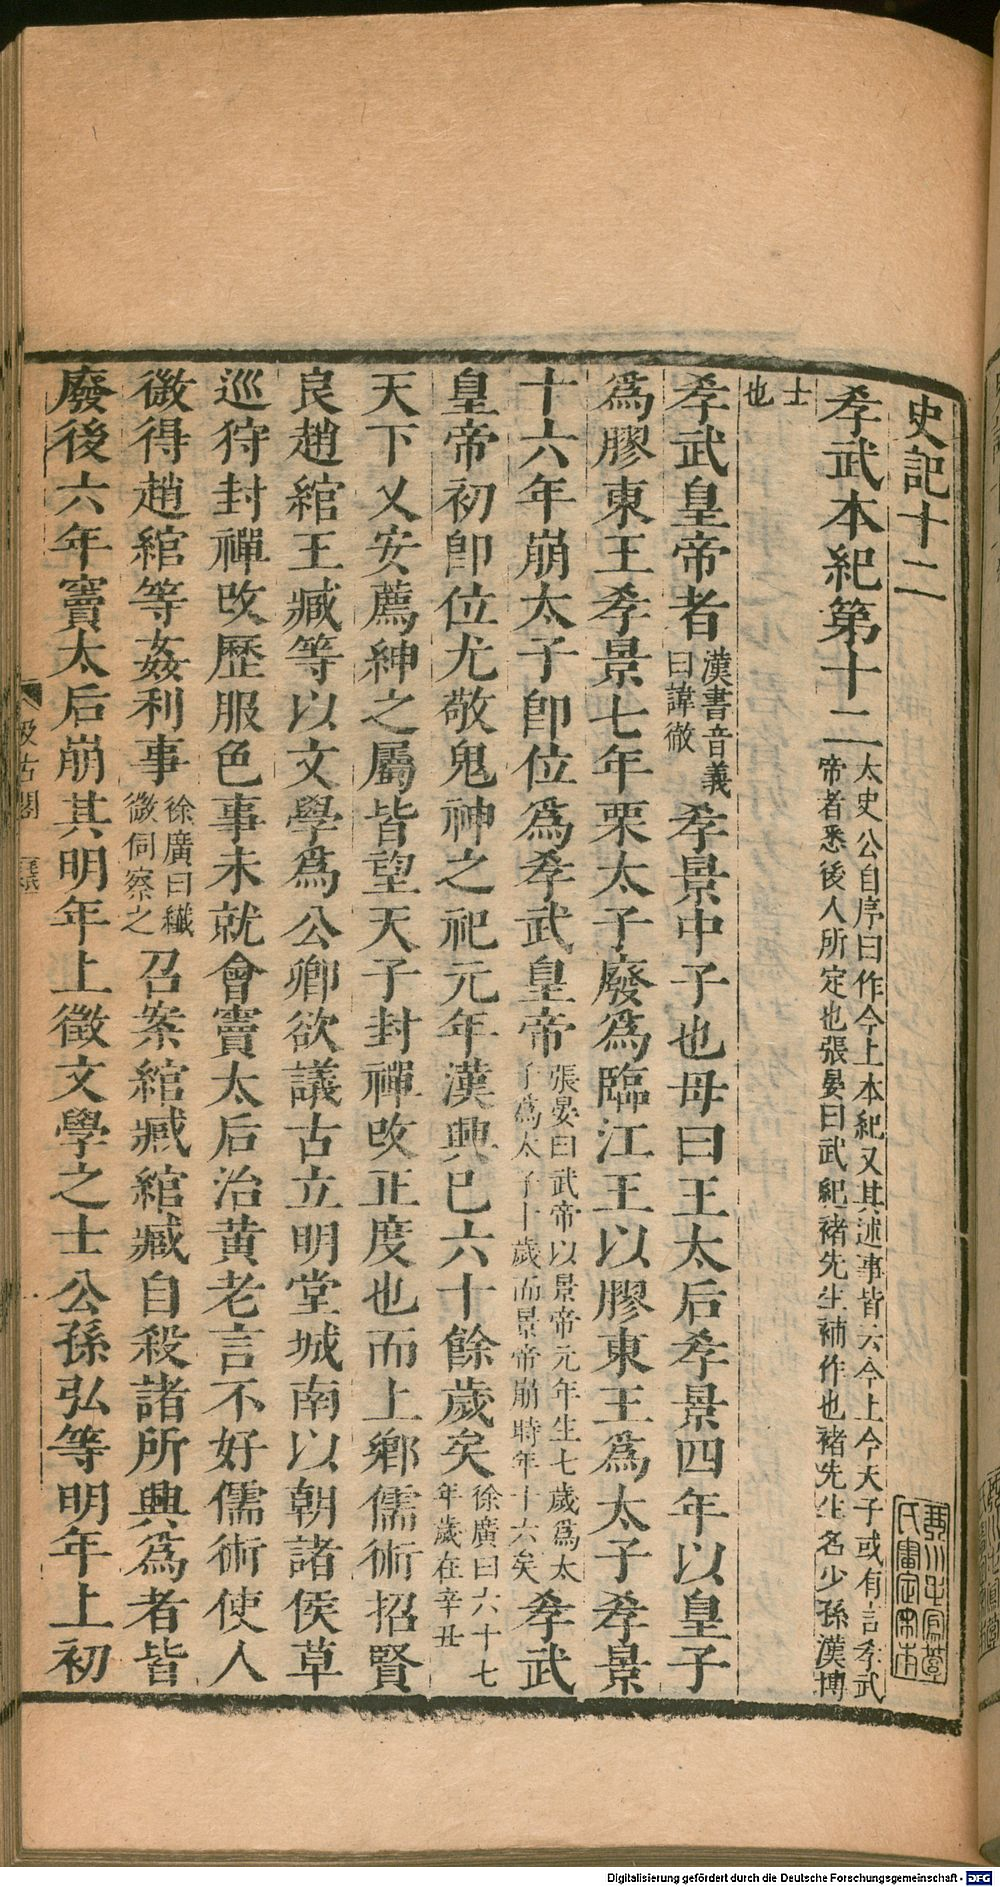 史記十二
孝武本紀第十二太史公自序曰作今上本紀又其述事皆云今上今天子或有言孝武
帝者悉後人所定也張晏曰武紀褚先生補作也褚先生名少孫漢博
士
也
孝武皇帝者漢書音義曰諱徹孝景中子也母曰王太后孝景四年以皇子
爲膠東王孝景七年栗太子廢爲臨江王以膠東王爲太子孝景
十六年崩太子卽位爲孝武皇帝張晏曰武帝以景帝元年生七歲爲太子爲太子十歲而景帝崩時年十六矣孝武
皇帝初卽位尤敬鬼神之祀元年漢興已六十餘歲矣徐廣曰六十七年歲在辛丑
天下乂安薦紳之屬皆望天子封禪改正度也而上鄉儒術招賢
良趙綰王臧等以文學爲公卿欲議古立明堂城南以朝諸侯草
巡狩封禪改歷服色事未就會竇太后治黃老言不好儒術使人
微得趙綰等姦利事徐廣曰纎微伺察之召案綰臧綰臧自殺諸所興爲者皆
廢後六年竇太后崩其明年上徵文學之士公孫弘等明年上初
汲古閣
Digitalisierung gefördert durch die Deutsche Forschungsgemeinschaft - DFG